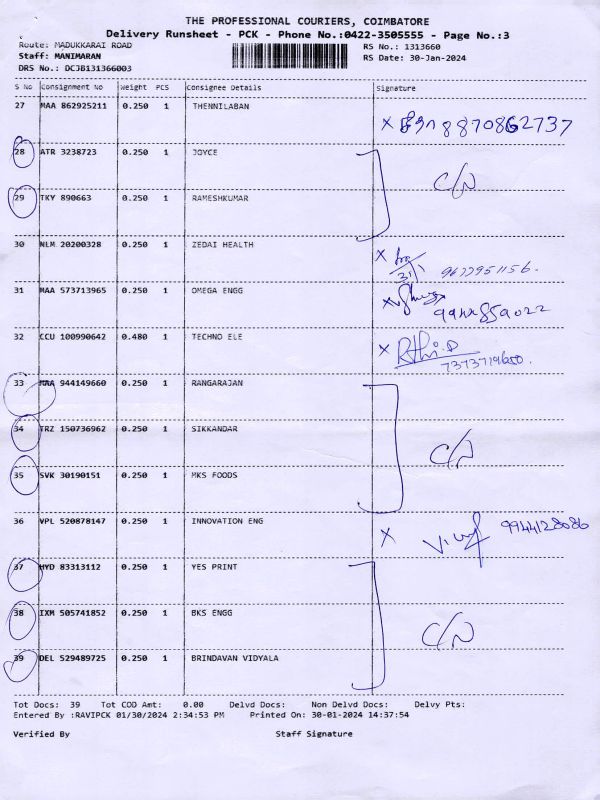 THE PROFESSIONAL COURIERS, COIMBATORE
Delivery Runsheet - PCK - Phone No.:0422-3505555 - Page No.:3
Route: MADUKKARAI ROAD RS No.: 1313660
Staff: MANIMARAN RS Date: 30-Jan-2024
DRS No.: DCJB131366003
S No Consignment No Weight PCS Consignee Details Signature
27 MAA 862925211 0.250 1 THENNILABAN
x 8870862737
28 ATR 3238723 0.250 1 JOYCE
C/N
29 TKY 890663 0.250 1 RAMESHKUMAR
30 NLM 20200328 0.250 1 ZEDAI HEALTH
x 31/1
31 MAA 573713965 0.250 1 OMEGA ENGG
x
32 CCU 100990642 0.480 1 TECHNO ELE
x
33 MAA 944149660 0.250 1 RANGARAJAN
34 TRZ 150736962 0.250 1 SIKKANDAR
C/N
35 SVK 30190151 0.250 1 MKS FOODS
36 VPL 520878147 0.250 1 INNOVATION ENG
x 9944128086
37 HYD 83313112 0.250 1 YES PRINT
38 IXM 505741852 0.250 1 BKS ENGG
C/N
39 DEL 529489725 0.250 1 BRINDAVAN VIDYALA
Tot Docs: 39 Tot COD Amt: 0.00 Delvd Docs: Non Delvd Docs: Delvy Pts:
Entered By :RAVIPCK 01/30/2024 2:34:53 PM Printed On: 30-01-2024 14:37:54
Verified By Staff Signature